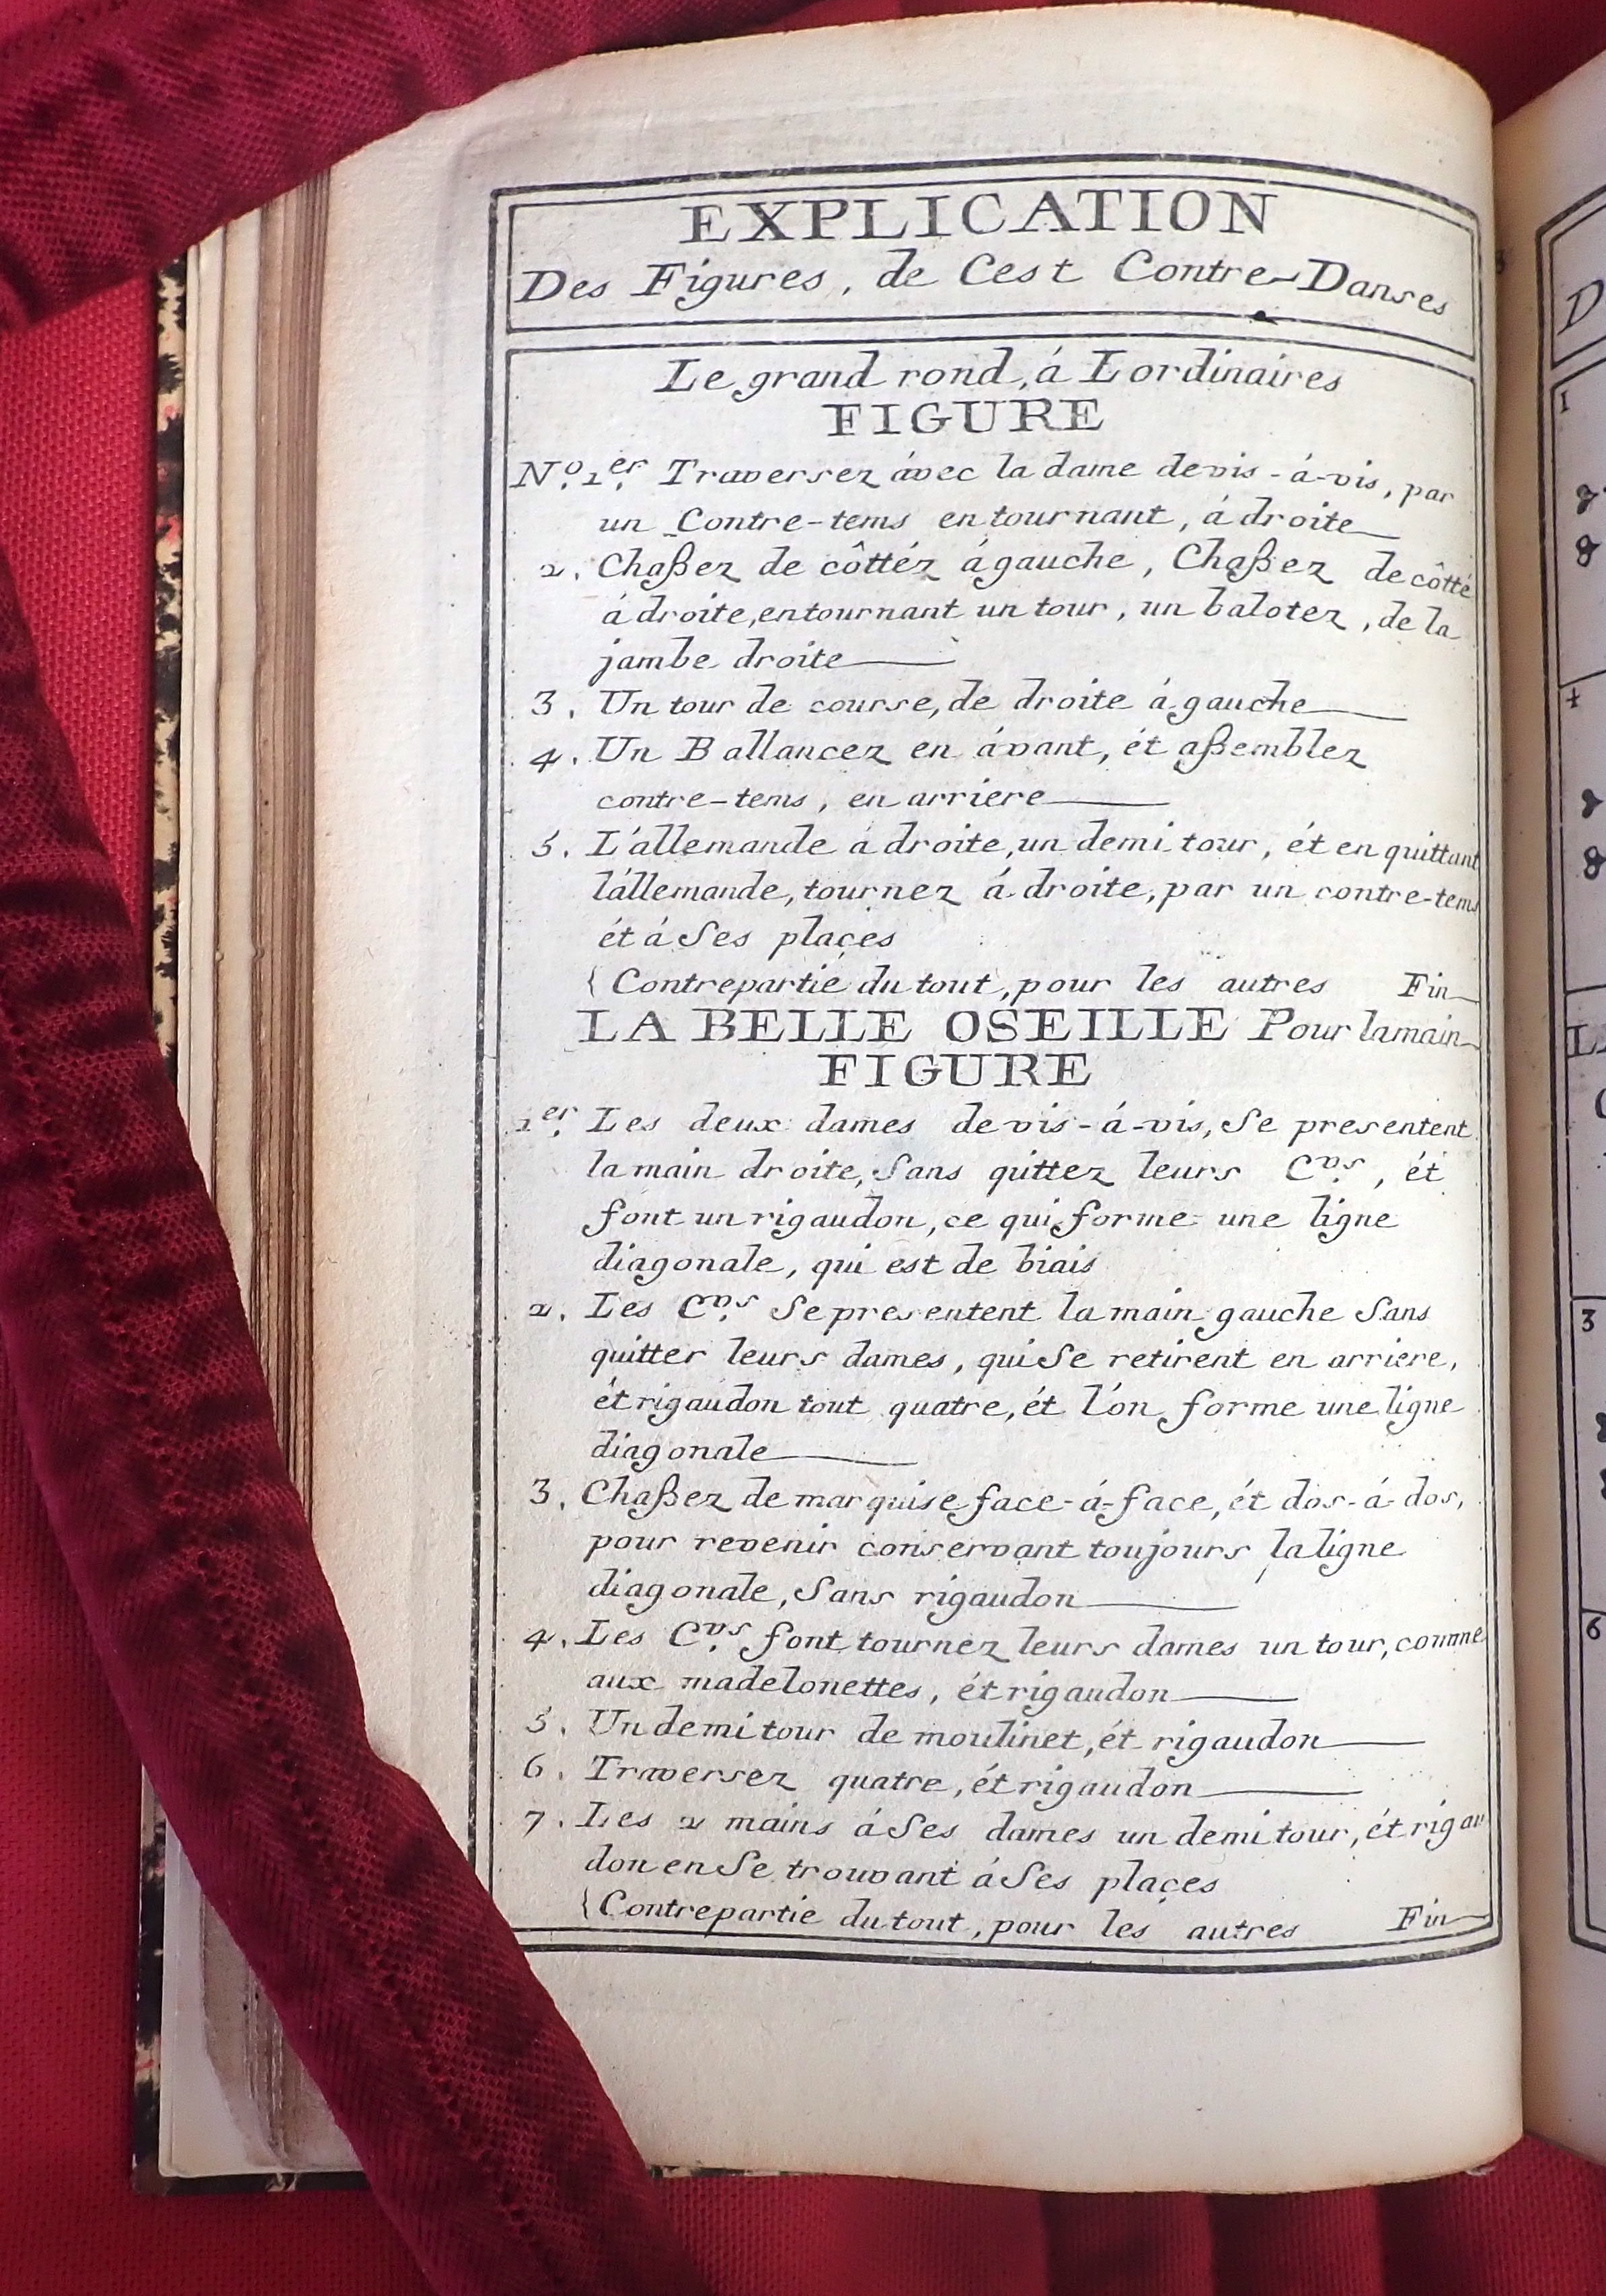 EXPLICATION
Des Figures, de Cest Contre-Danses
Le grand rond, á Lordinaires
FIGURE
N.º 1.er Traversez ávec la dame devis-á-vis, par
un Contre-tems en tournant, á droite
2. Chaßez de côttéz á gauche, Chaßez de côtté
á droite, en tournant un tour, un balotez, de la
jambe droite
3. Un tour de course, de droite á gauche
4. Un Ballancez en ávant, ét aßemblez
contre-tems, en arriere
5. L'állemande á droite, un demi tour, ét en quittant
l'állemande, tournez á droite, par un contre-tems
ét á Ses plaçes
{Contrepartie du tout, pour les autres Fin
LA BELLE OSEILLE Pour la main
FIGURE
1.er Les deux dames devis-á-vis, Se presentent
la main droite, Sans quittez leurs C.vrs, ét
font un rigaudon, ce qui forme une ligne
diagonale, qui est de biais
2. Les C.vrs Se presentent la main gauche Sans
quitter leurs dames, qui Se retirent en arriere,
ét rigaudon tout quatre, ét l'ón forme une ligne
diagonale
3. Chaßez de marquise face-á-face, ét dos-á-dos,
pour revenir conservant toujours la ligne
diagonale, Sans rigaudon
4. Les C.vrs font tournez leurs dames un tour, comme
aux madelonettes, ét rigaudon
5. Un demi tour de moulinet, ét rigaudon
6. Traversez quatre, ét rigaudon
7. Les 2 mains á Ses dames un demi tour, ét rigau
don en Se trouvant á Ses plaçes
{Contrepartie du tout, pour les autres Fin
D
1
4
3
6